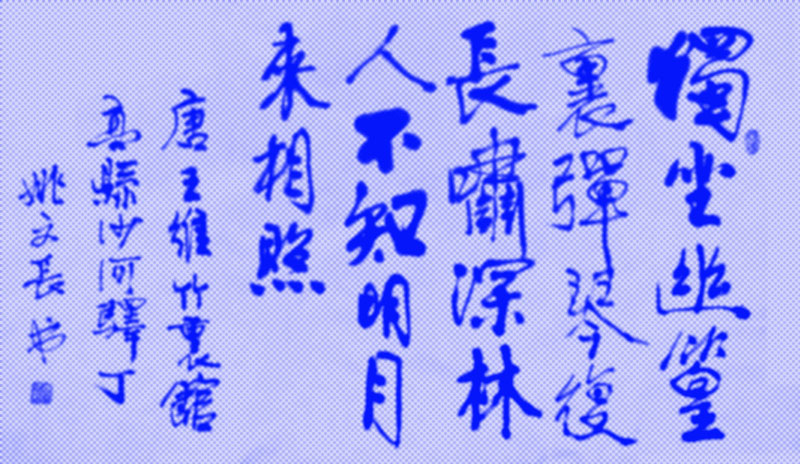 獨坐幽篁
裏彈琴復
長嘯深林
人不知明月
來相照
唐王維竹裏館
高縣沙河驛丁
姚文長書